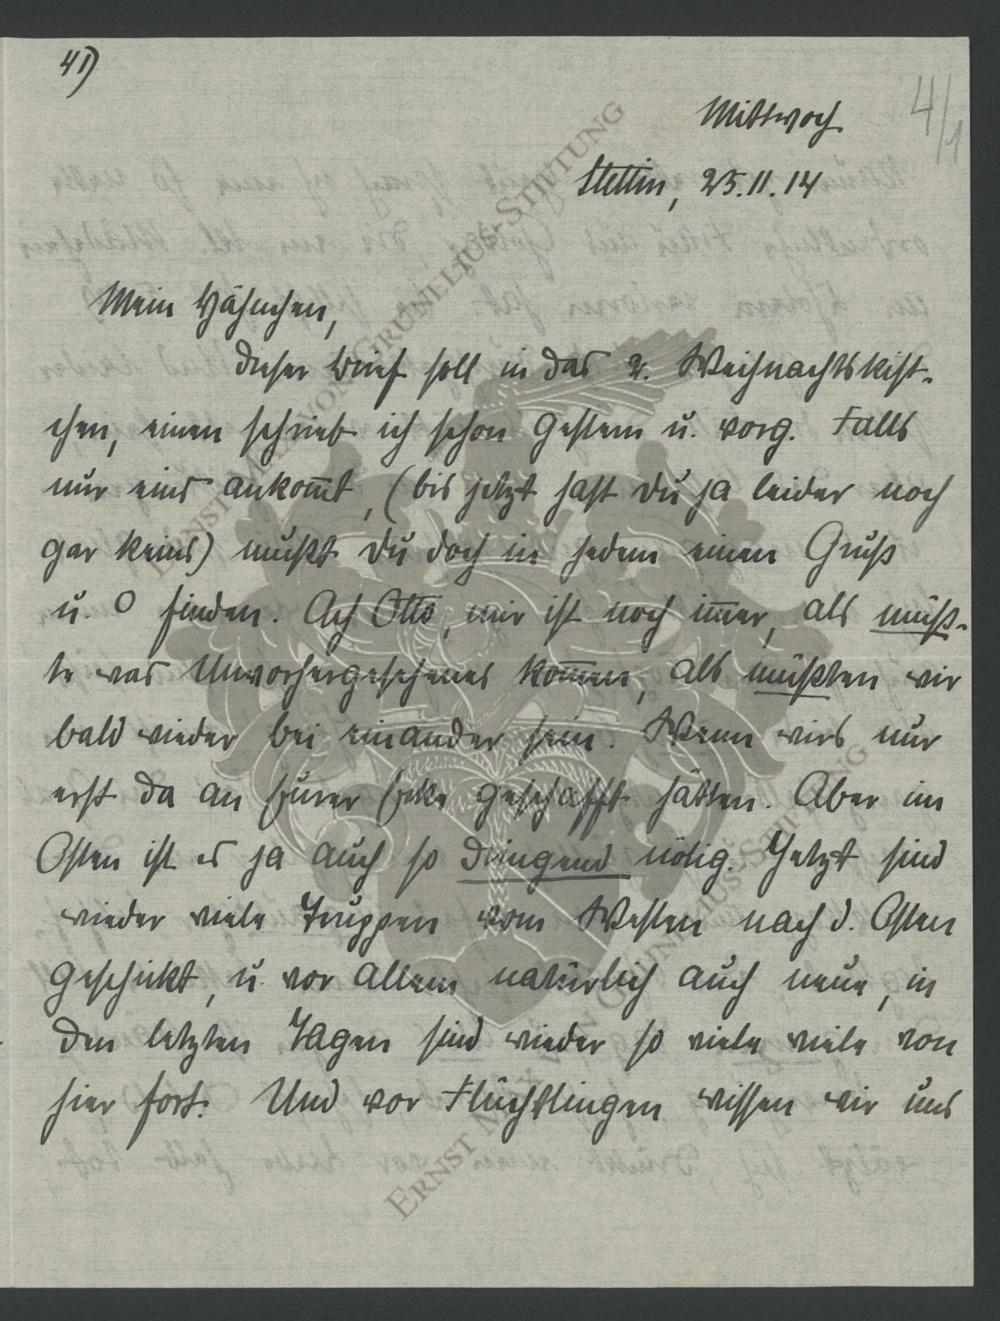 41)
4/1
Mittwoch
Stettin, 25.11.14
Mein Hähnchen,
dieser Brief soll in das 2. Weihnachtskist-
chen, einen schrieb ich schon gestern u. vorg. Falls
nur eins ankom̄t, (bis jetzt hast du ja leider noch
gar keins) mußt du doch in jedem einen Gruß
u. O finden. Ach Otto, mir ist noch im̄er, als müß-
te was Unvorhergesehenes kom̄en, als müßten wir
bald wieder bei einander sein. Wenn wirs nur
erst da an Eurer Ecke geschafft hätten. Aber im
Osten ist es ja auch so dringend nötig. Jetzt sind
wieder viele Truppen vom Westen nach d. Osten
geschickt, u. vor allem natürlich auch neue, in
den letzten Tagen sind wieder so viele viele von
hier fort. Und vor Flüchtlingen wissen wir uns
Ernst Max von Grunelius-Stiftung
Ernst Max von Grunelius-Stiftung